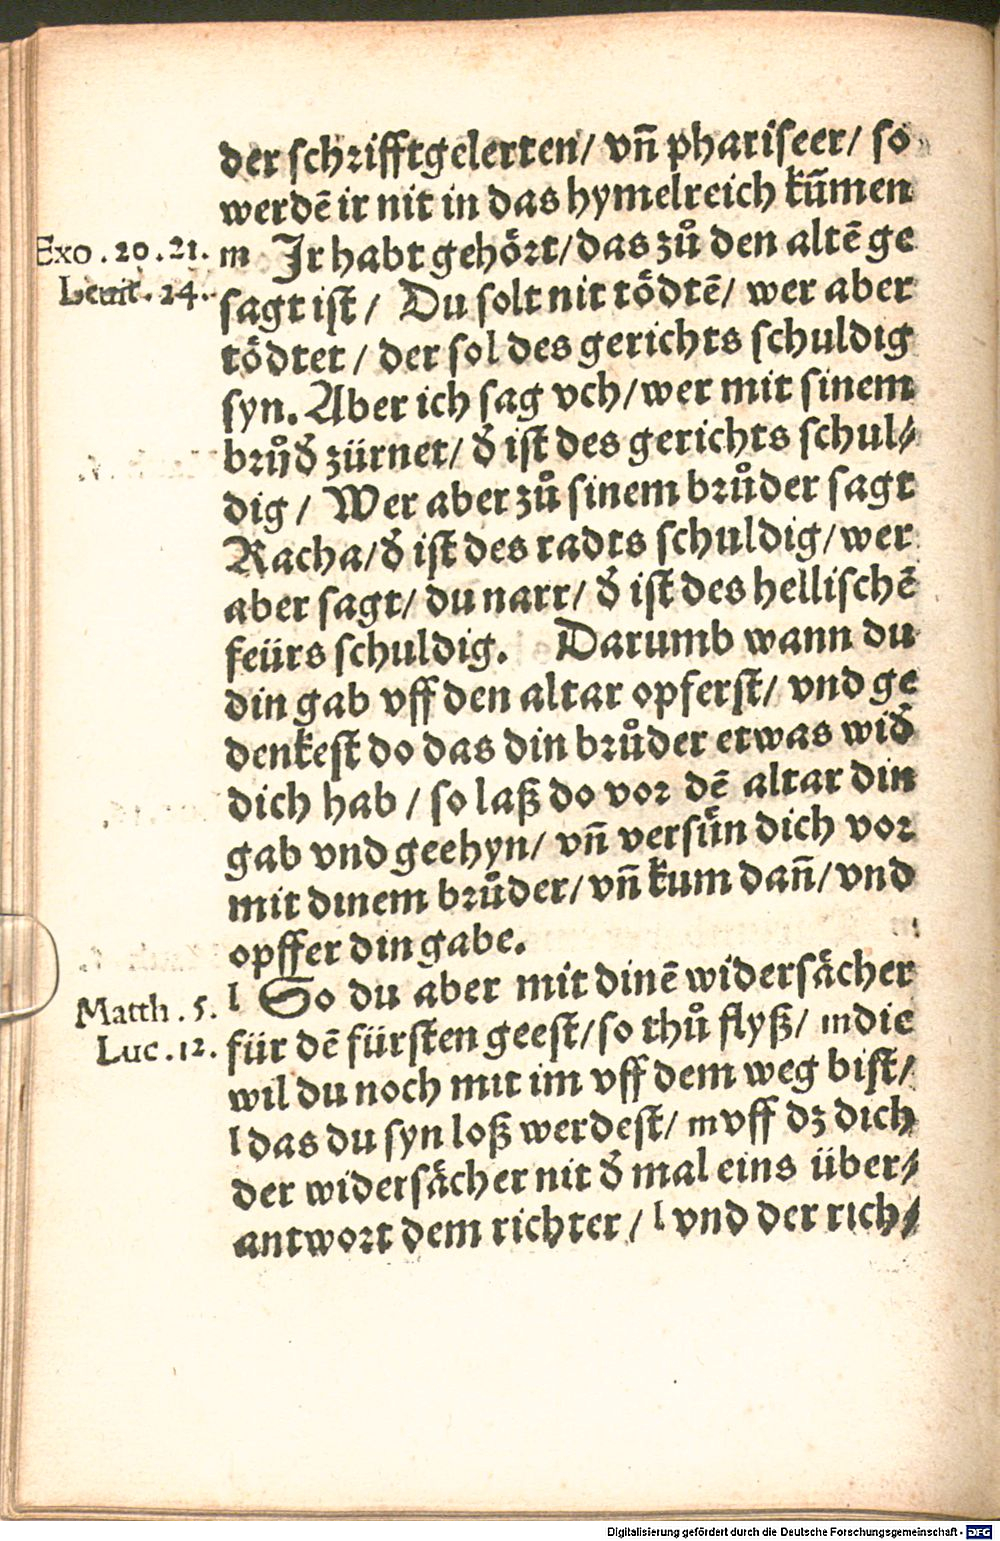 der schrifftgelerten/ vn̄ phariseer/ so
werdē ir nit in das hymelreich kūmen
Exo . 20 . 21.
m Jr habt gehört/das zů den altē ge
Leuit . 24 .
sagt ist / Du solt nit tödtē/ wer aber
tödtet / der sol des gerichts schuldig
syn. Aber ich sag vch/wer mit sinem
brůd̄ zürnet/ d̄ ist des gerichts schul⸗
dig / Wer aber zů sinem brůder sagt
Racha/d̄ ist des radts schuldig/wer
aber sagt/ du narr/ d̄ ist des hellischē
feürs schuldig. Darumb wann du
din gab vff den altar opferst/ vnd ge
denkest do das din brůder etwas wid̄
dich hab / so laß do vor dē altar din
gab vnd geehyn/ vn̄ versün dich vor
mit dinem brůder/vn̄ kum dan̄/vnd
opffer din gabe.
Matth . 5.
l So du aber mit dinē widersächer
Luc . 12.
für dē fürsten geest/so thů flyß/ m die
wil du noch mit im vff dem weg bist/
l das du syn loß werdest/ m vff dz dich
der widersächer nit d̄ mal eins über⸗
antwort dem richter / l vnd der rich⸗
Digitalisierung gefördert durch die Deutsche Forschungsgemeinschaft - DFG